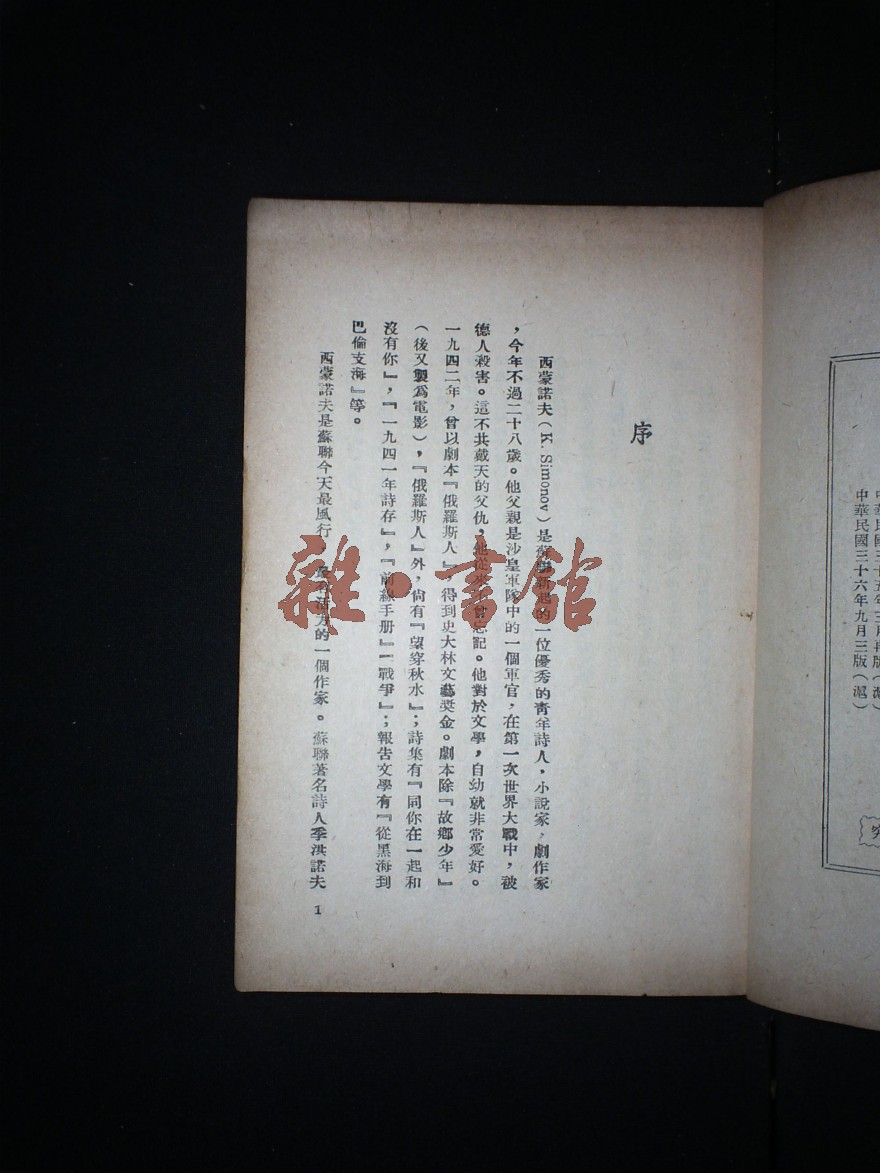 中華民國三十五年三月再版(滬)
中華民國三十六年九月三版(滬)
序
西蒙諾夫(K. Simonov)是蘇聯新起的一位優秀的青年詩人,小說家,劇作家
,今年不過二十八歲。他父親是沙皇軍隊中的一個軍官,在第一次世界大戰中,被
德人殺害。這不共戴天的父仇,他從來曾忘記。他對於文學,自幼就非常愛好。
一九四二年,曾以劇本『俄羅斯人』,得到史大林文藝獎金。劇本除『故鄉少年』
(後又製爲電影),『俄羅斯人』外,尙有『望穿秋水』;詩集有『同你在一起和
沒有你』,『一九四一年詩存』,『前線手册』『戰爭』;報告文學有『從黑海到
巴倫支海』等。
西蒙諾夫是蘇聯今天最風行 最有活力的一個作家。蘇聯著名詩人季洪諾夫
1
雜·書館